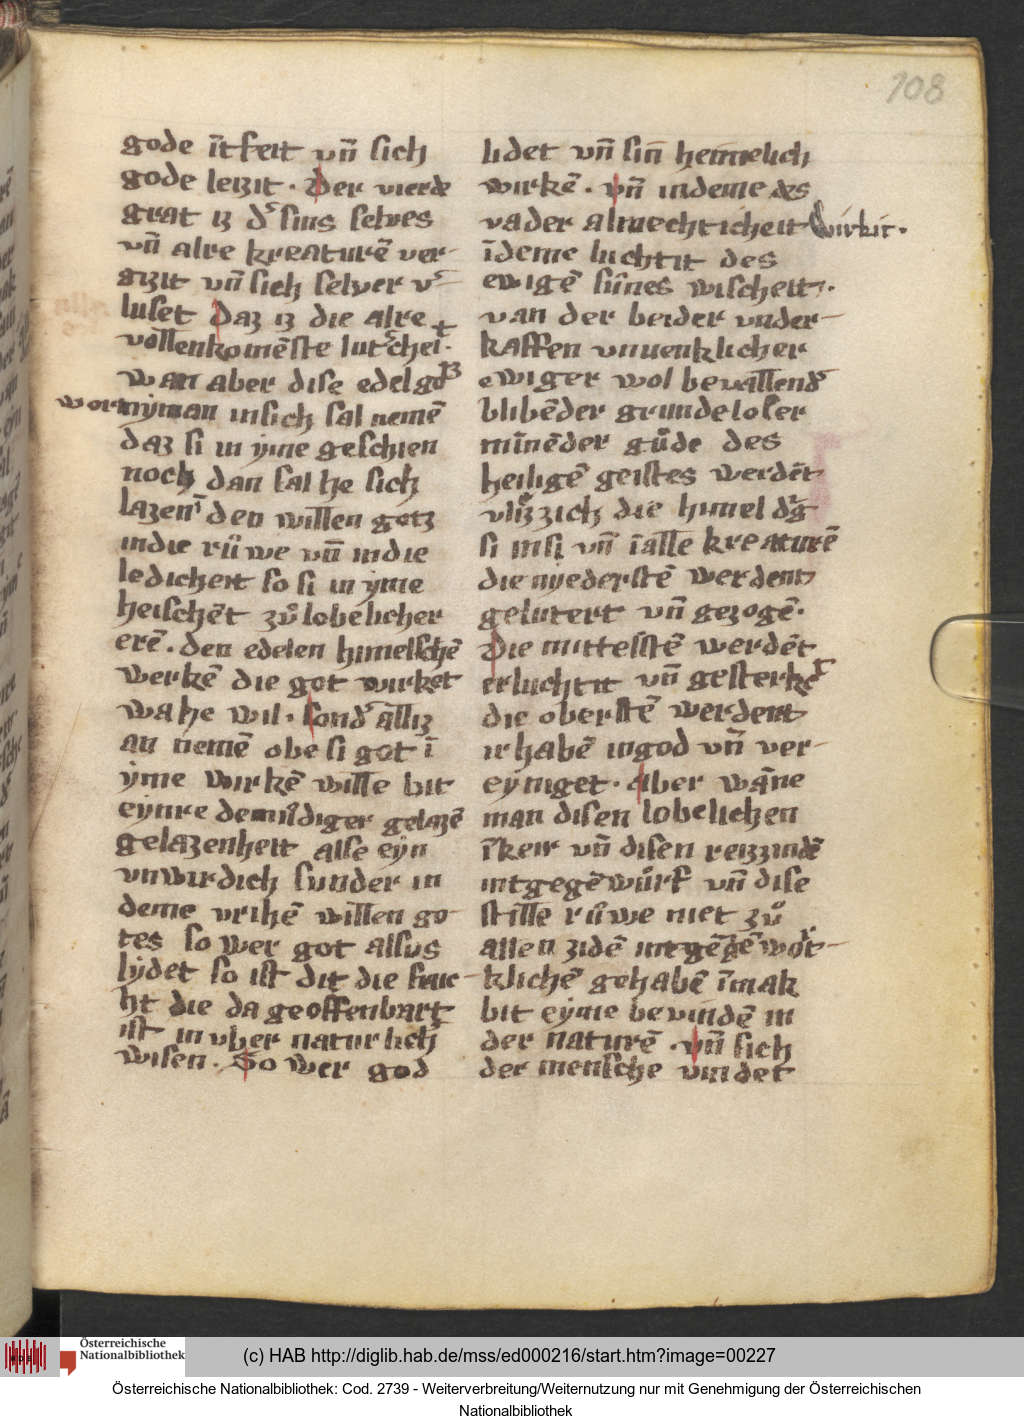 108
gode ītfeit vn̄ sich
gode leizit · Der vierde
grat iz d' sins selues
vn̄ alre kreaturē ver-
gizit vn̄ sich seluer v'-
luset Daz iz die alre
vollenkomēste lut'chei-t
wan aber dise edel got
wort nyman in sich sal nemē
daz si in yme geschien
noch dan sal he sich
lazen den willen gotz
in die ruwe vn̄ in die
ledicheit so si in yme
heischēt zů lobelicher
erē . den edelen himelschē
werkē die got wirket
wa he wil · sond' alliz
an nemē obe si got ī
yme wirkē wille bit
eynre demůdiger gelazē
gelazenheit alse eyn
vnwirdich sunder in
deme vrihē willen go-
tes so wer got alsus
lydet so ist dit die
ht die da geoffenbart
ist in vber naturlich
wisen . So wer god
lidet vn̄ sin heimelich
wirkē . vn̄ in deme des
vader almechticheit wirkit .
ī deme luchtit des
ewigē sūnes wischeit .
van der beider vnder-
kaffen vnuenklicher
ewiger wol beuallend'
blibēder grundeloser
minēder gůde des
heiligē geistes werdēt
vliizzich die himel
si in si vn̄ ī alle kreaturē
die nyederstē werdent
gelutert vn̄ gezogē .
die mittelstē werdēt
erluchtit vn̄ gesterket
die oberstē werdent
irhabē in god vn̄ ver-
eyniget . aber wāne
man disen lobelichen
īkeir vn̄ disen reizzindē
intgegēwůrf vn̄ dise
stille růwe niet zů
allen zidē intgēgēwort-
klichē gehabē ī mak
bit eyme beuindē in
der naturē . vn̄ sich
der mensche vindet
Österreichische
Nationalbibliothek
(c) HAB http://diglib.hab.de/mss/ed000216/start.htm?image=00227
Österreichische Nationalbibliothek: Cod. 2739 - Weiterverbreitung/Weiternutzung nur mit Genehmigung der Österreichischen
Nationalbibliothek